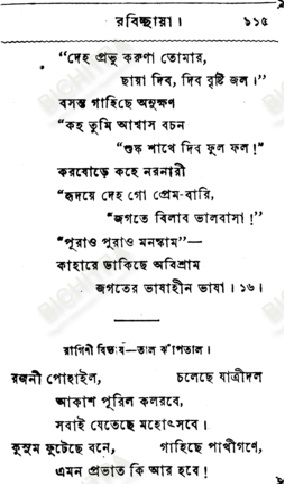 রবিচ্ছায়া। ১১৫
“দেহ প্রভু করুণা তোমার,
ছায়া দিব, দিব বৃষ্টি জল।”
বসন্ত গাহিছে অনুক্ষণ
“কহ তুমি আশ্বাস বচন
“শুষ্ক শাখে দিব ফুল ফল!”
করযোড়ে কহে নরনারী
“হৃদয়ে দেহ গো প্রেম-বারি,
“জগতে বিলাব ভালবাসা!”
“পূরাও পূরাও মনস্কাম”—
কাহারে ডাকিছে অবিশ্রাম
জগতের ভাষাহীন ভাষা। ১৬।
রাগিণী বিভাষ—তাল ঝাঁপতাল।
রজনী পোহাইল, চলেছে যাত্রীদল
আকাশ পূরিল কলরবে,
সবাই যেতেছে মহোৎসবে।
কুসুম ফুটেছে বনে, গাহিছে পাখীগণে,
এমন প্রভাত কি আর হবে!